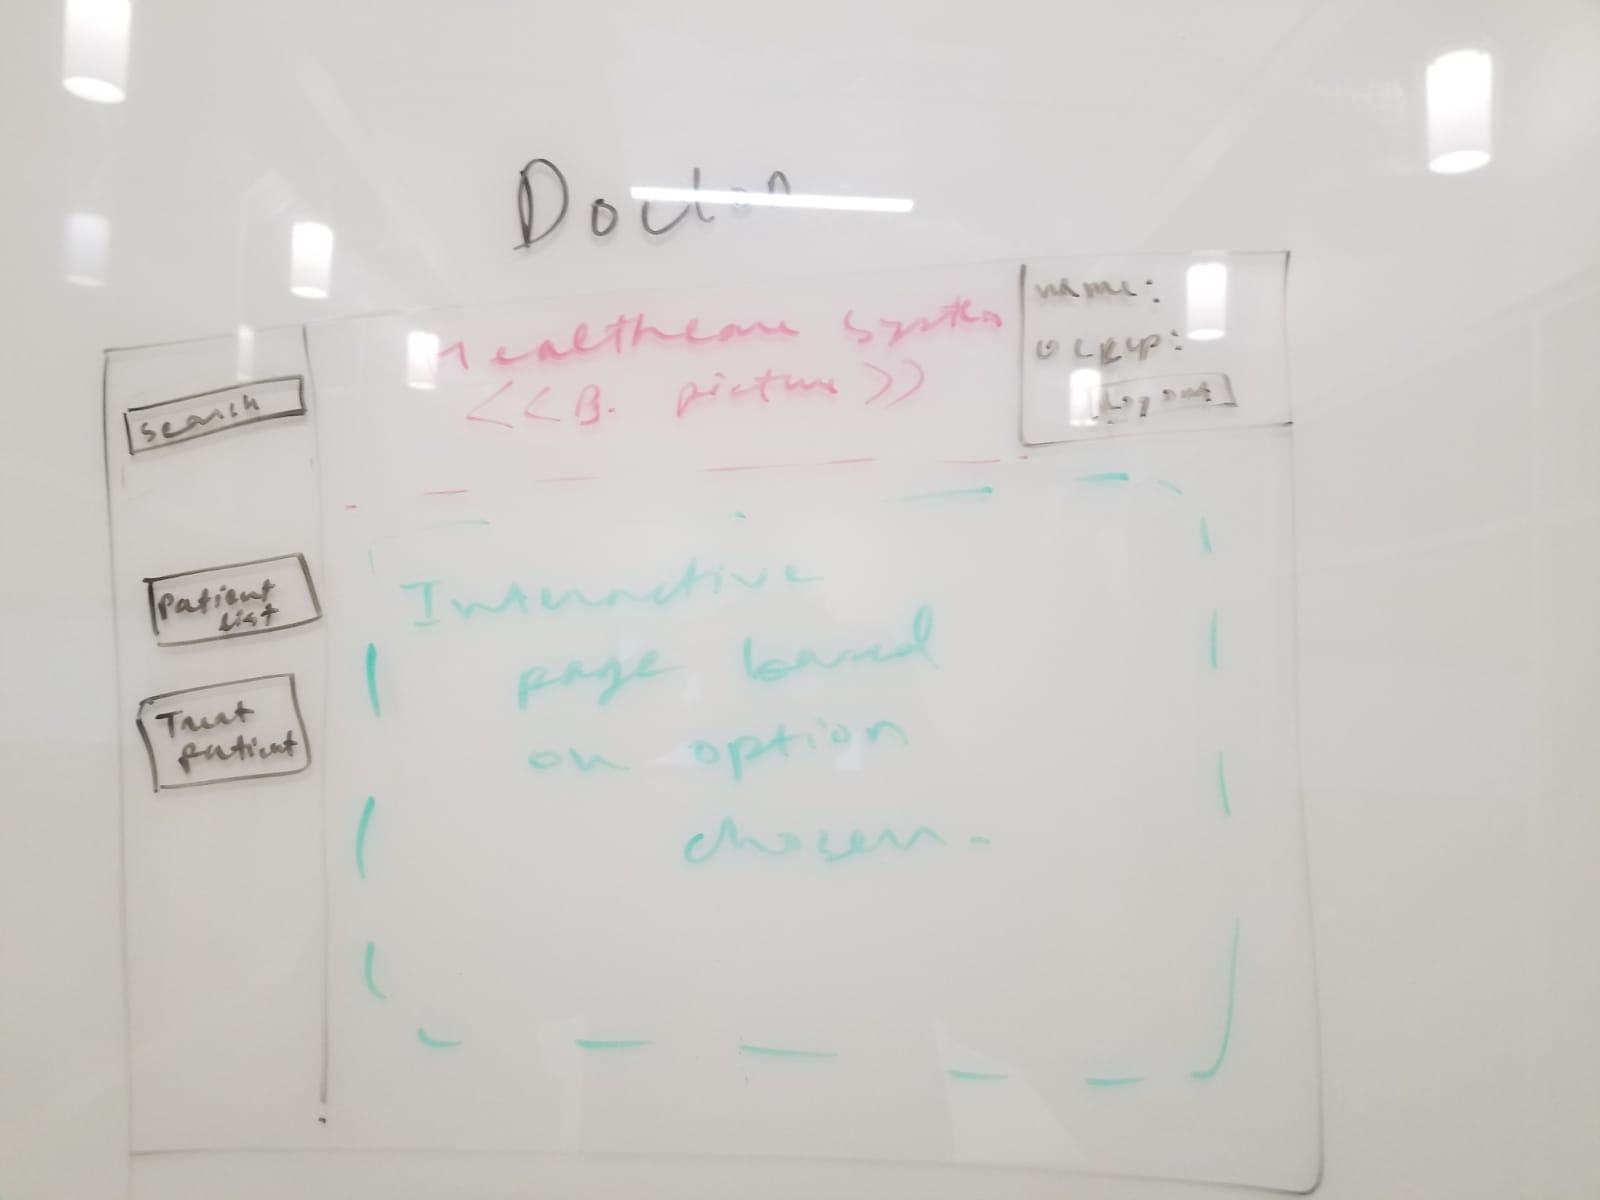 Doctor
Healthcare System
<< B. picture >>
name:
occup:
Logout
search
patient
list
Treat
patient
Interactive
page based
on option
chosen.